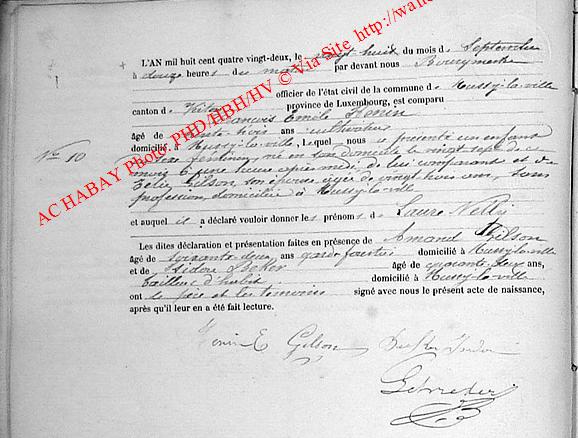 L'AN mil huit cent quatre vingt-deux, le vingt-huit du mois de Septembre
à douze heures du matin par devant nous
officier de l'état civil de la commune de Mussy-la-ville
canton de Virton province de Luxembourg, est comparu
François Emile Henin
âgé de trente-trois ans cultivateur
domicilié à Mussy-la-ville, Lequel nous a présenté un enfant
Nº 10
du sexe féminin, né en son domicile le vingt sept de ce
mois à une heure après-midi, de lui comparant et de
Zélie Gilson, son épouse âgée de vingt trois ans, sans
profession, domiciliée à Mussy-la-ville
et auquel il a déclaré vouloir donner les prénoms de Laure Nelly
Les dites déclaration et présentation faites en présence de Amand Gilson
âgé de soixante deux ans garde forestier domicilié à Mussy-la-ville
et de Isidore âgé de quarante deux ans,
tailleur d'habits domicilié à Mussy-la-ville
ont le père et les témoins signé avec nous le présent acte de naissance,
après qu'il leur en a été fait lecture.
Henin E Gilson
AC HABAY Photo: PHD/HBH/HV © Via Site http://www